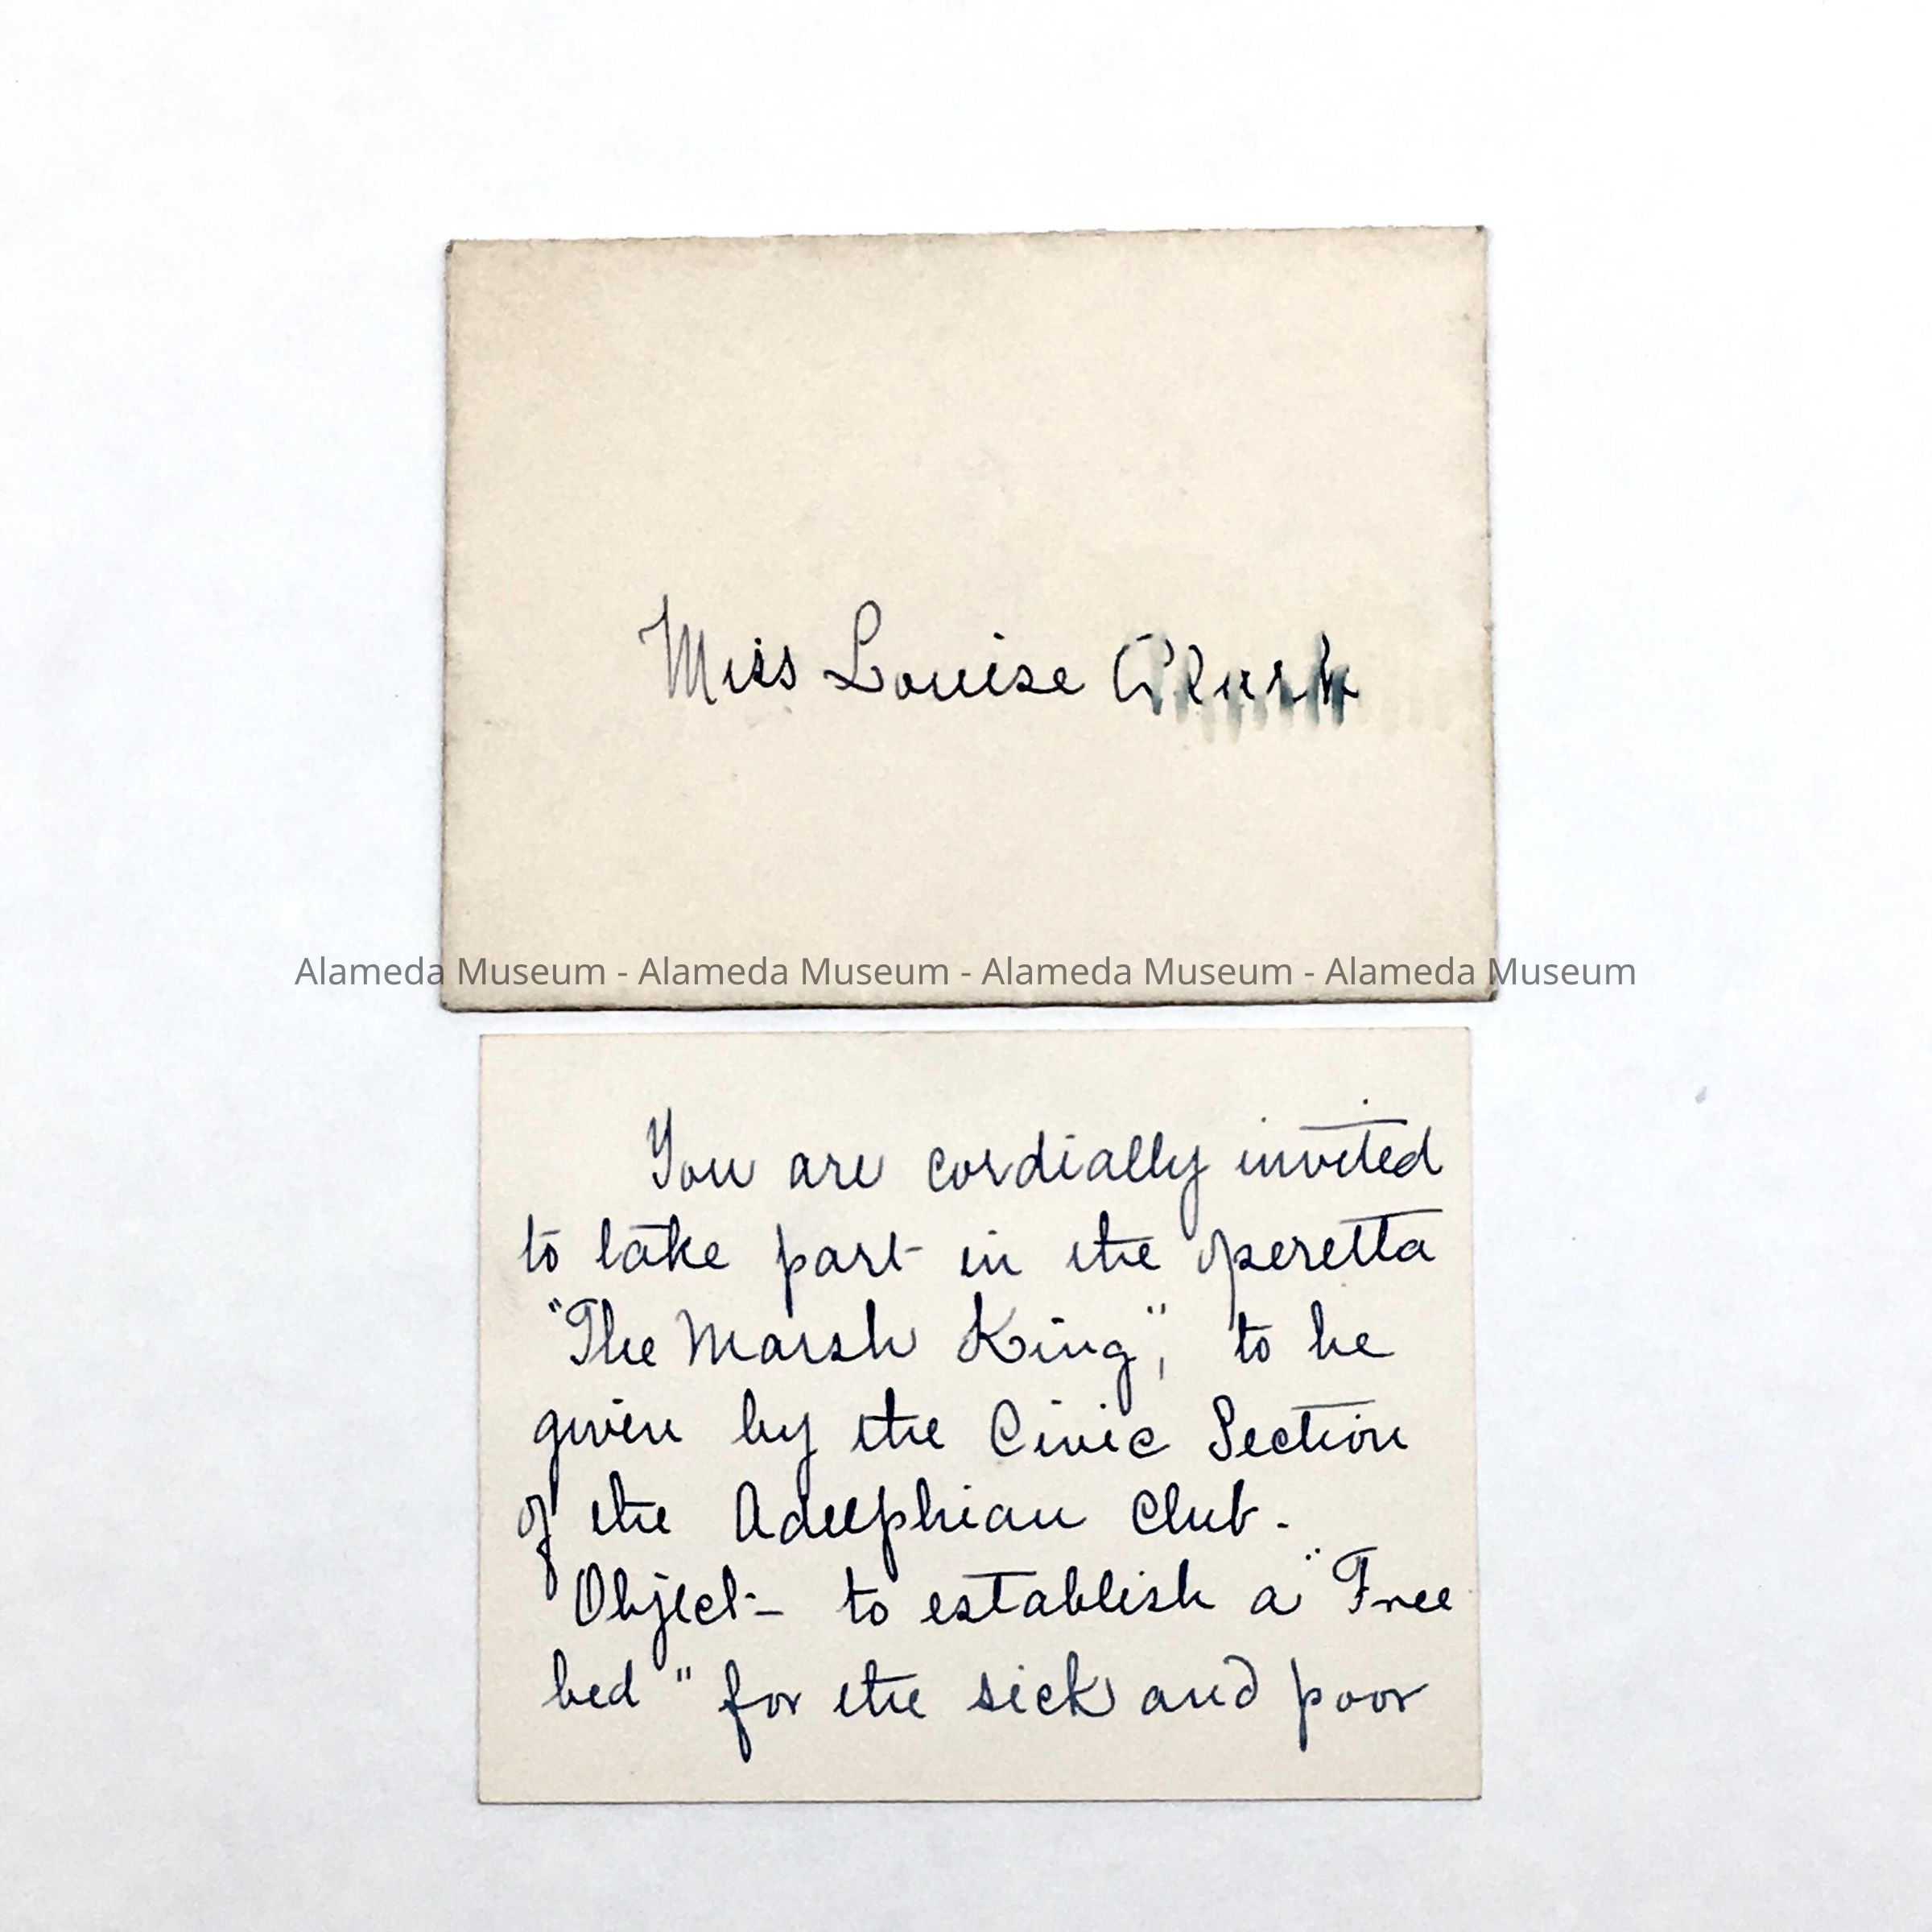 Miss Louise
Alameda Museum - Alameda Museum - Alameda Museum - Alameda Museum
You are cordially invited
to take part in the operetta
"The Marsh King", to be
given by the Civic Section
of the Adelphian Club.
Object - to establish a "Free
bed" for the sick and poor